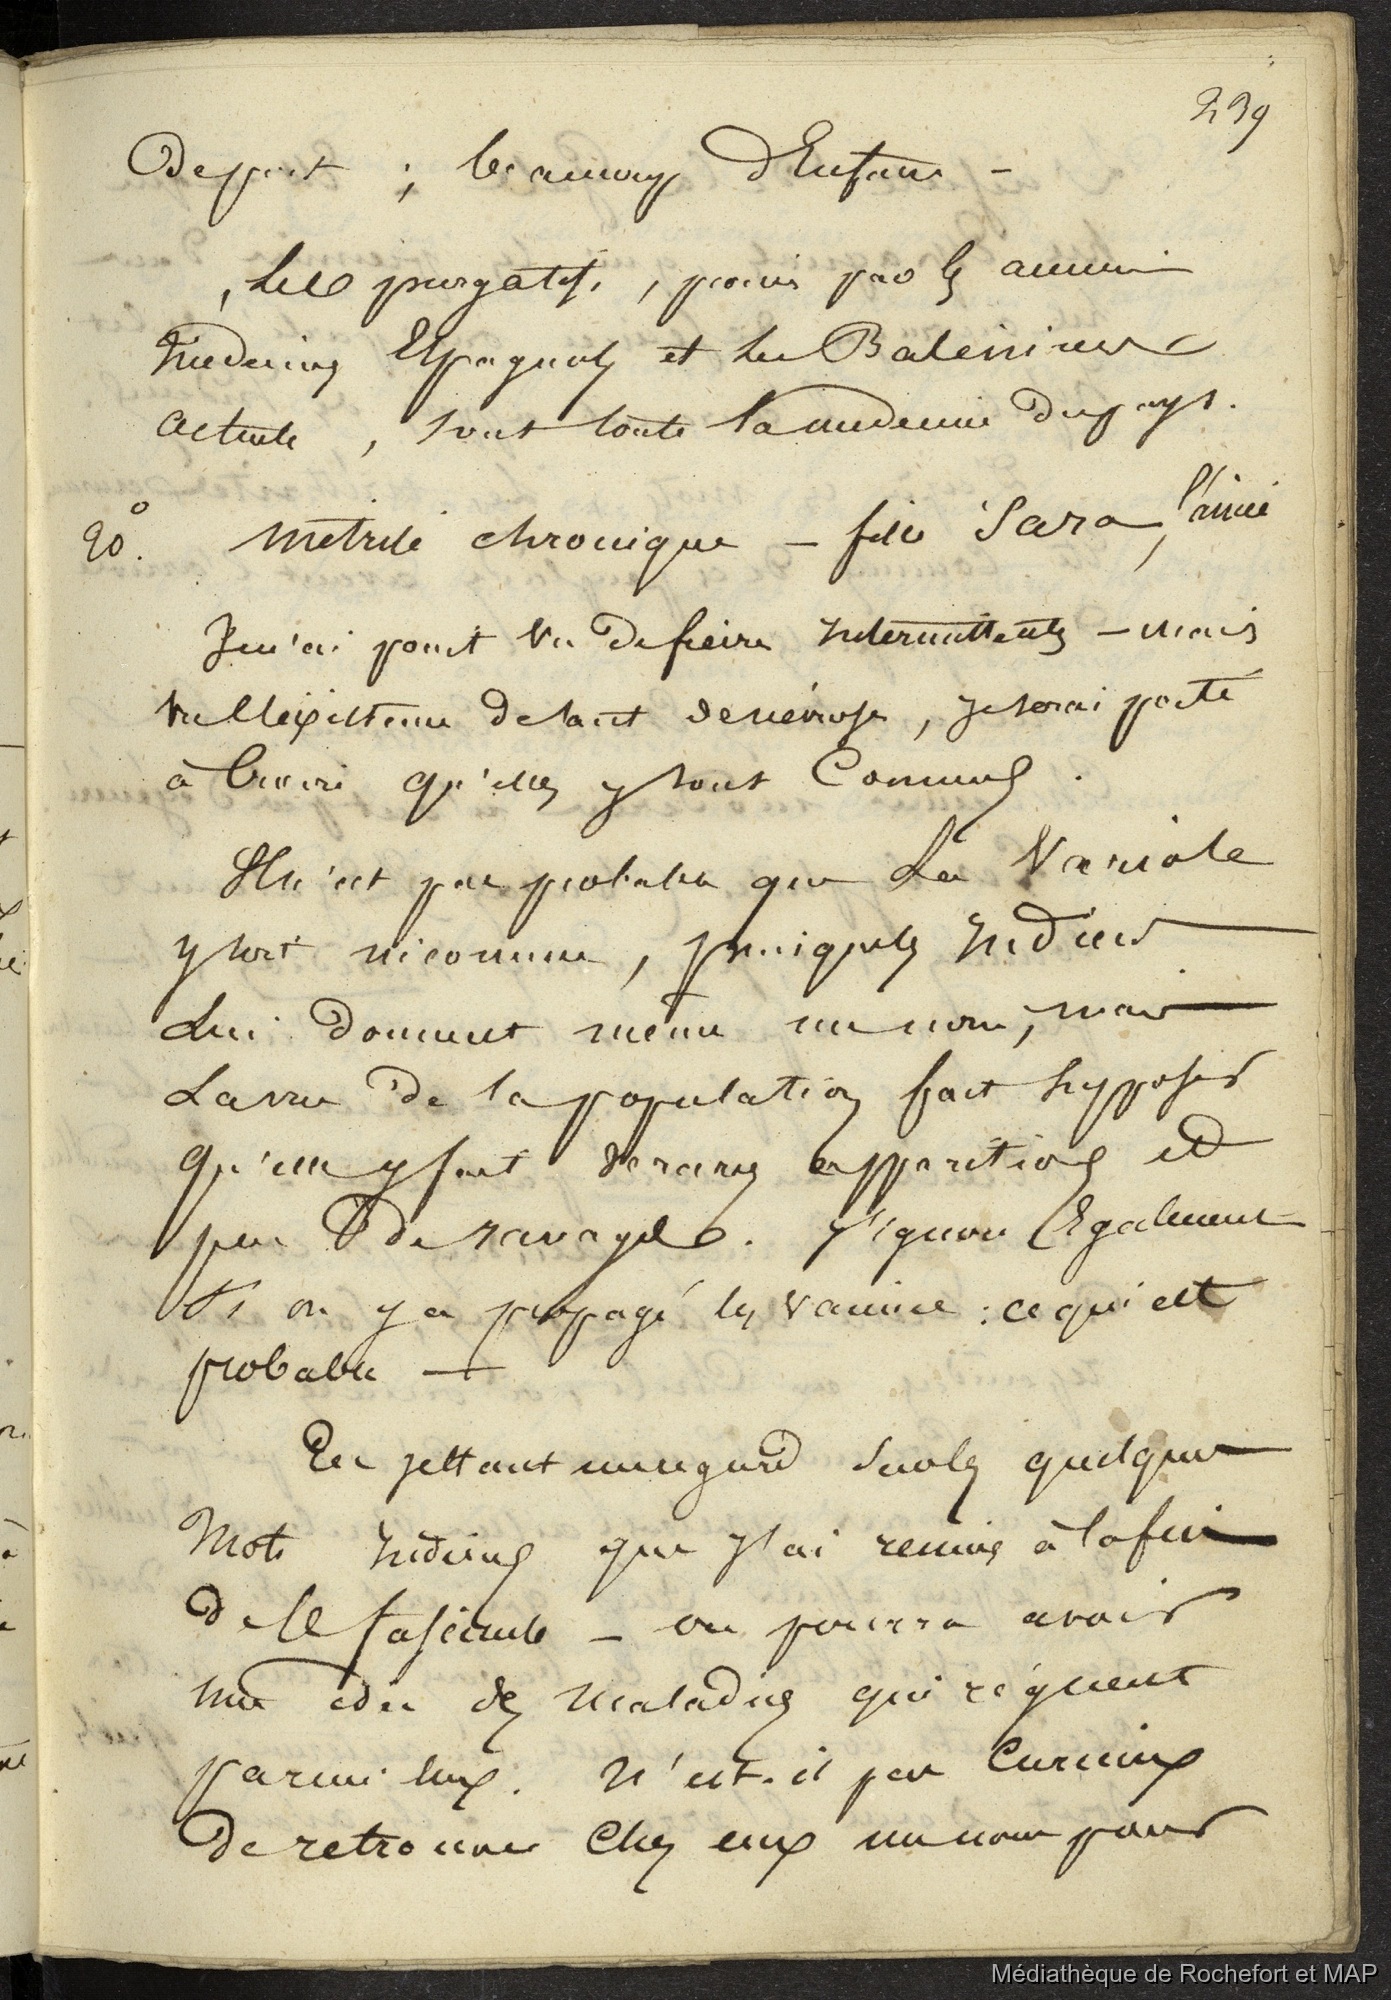 239
De part ; beaucoup d'Enfans -
Les purgatifs, promis par les anciens
médecins Espagnols et les Baleiniers
actuels, sont toute la medecine du pays.
20°. Métrite chronique - fille Sara, l'ainée
Je n'ai point vu de fievres Intermittentes - mais
vu l'éxistence de tant de névroses, je serai porté
à Croire qu'elles y sont Communes.
Il n'est pas probable que La Variole
y soit inconnue, puisque les Indiens
Lui donnent même un nom, mais
La vue de la population fait supposer
qu'elle y fait de rares apparitions et
peu de ravages. J'ignore Egalement
si on y a propagé la vaccine : ce qui est
probable —
En jettant un regard sur les quelques
Mots Indiens que j'ai remis à la fin
de ce fascicule - on pourra avoir
une idée des maladies qui règnent
parmi eux. N'est-il pas Curieux
de retrouver Chez eux un nom pour
Médiathèque de Rochefort et MAP